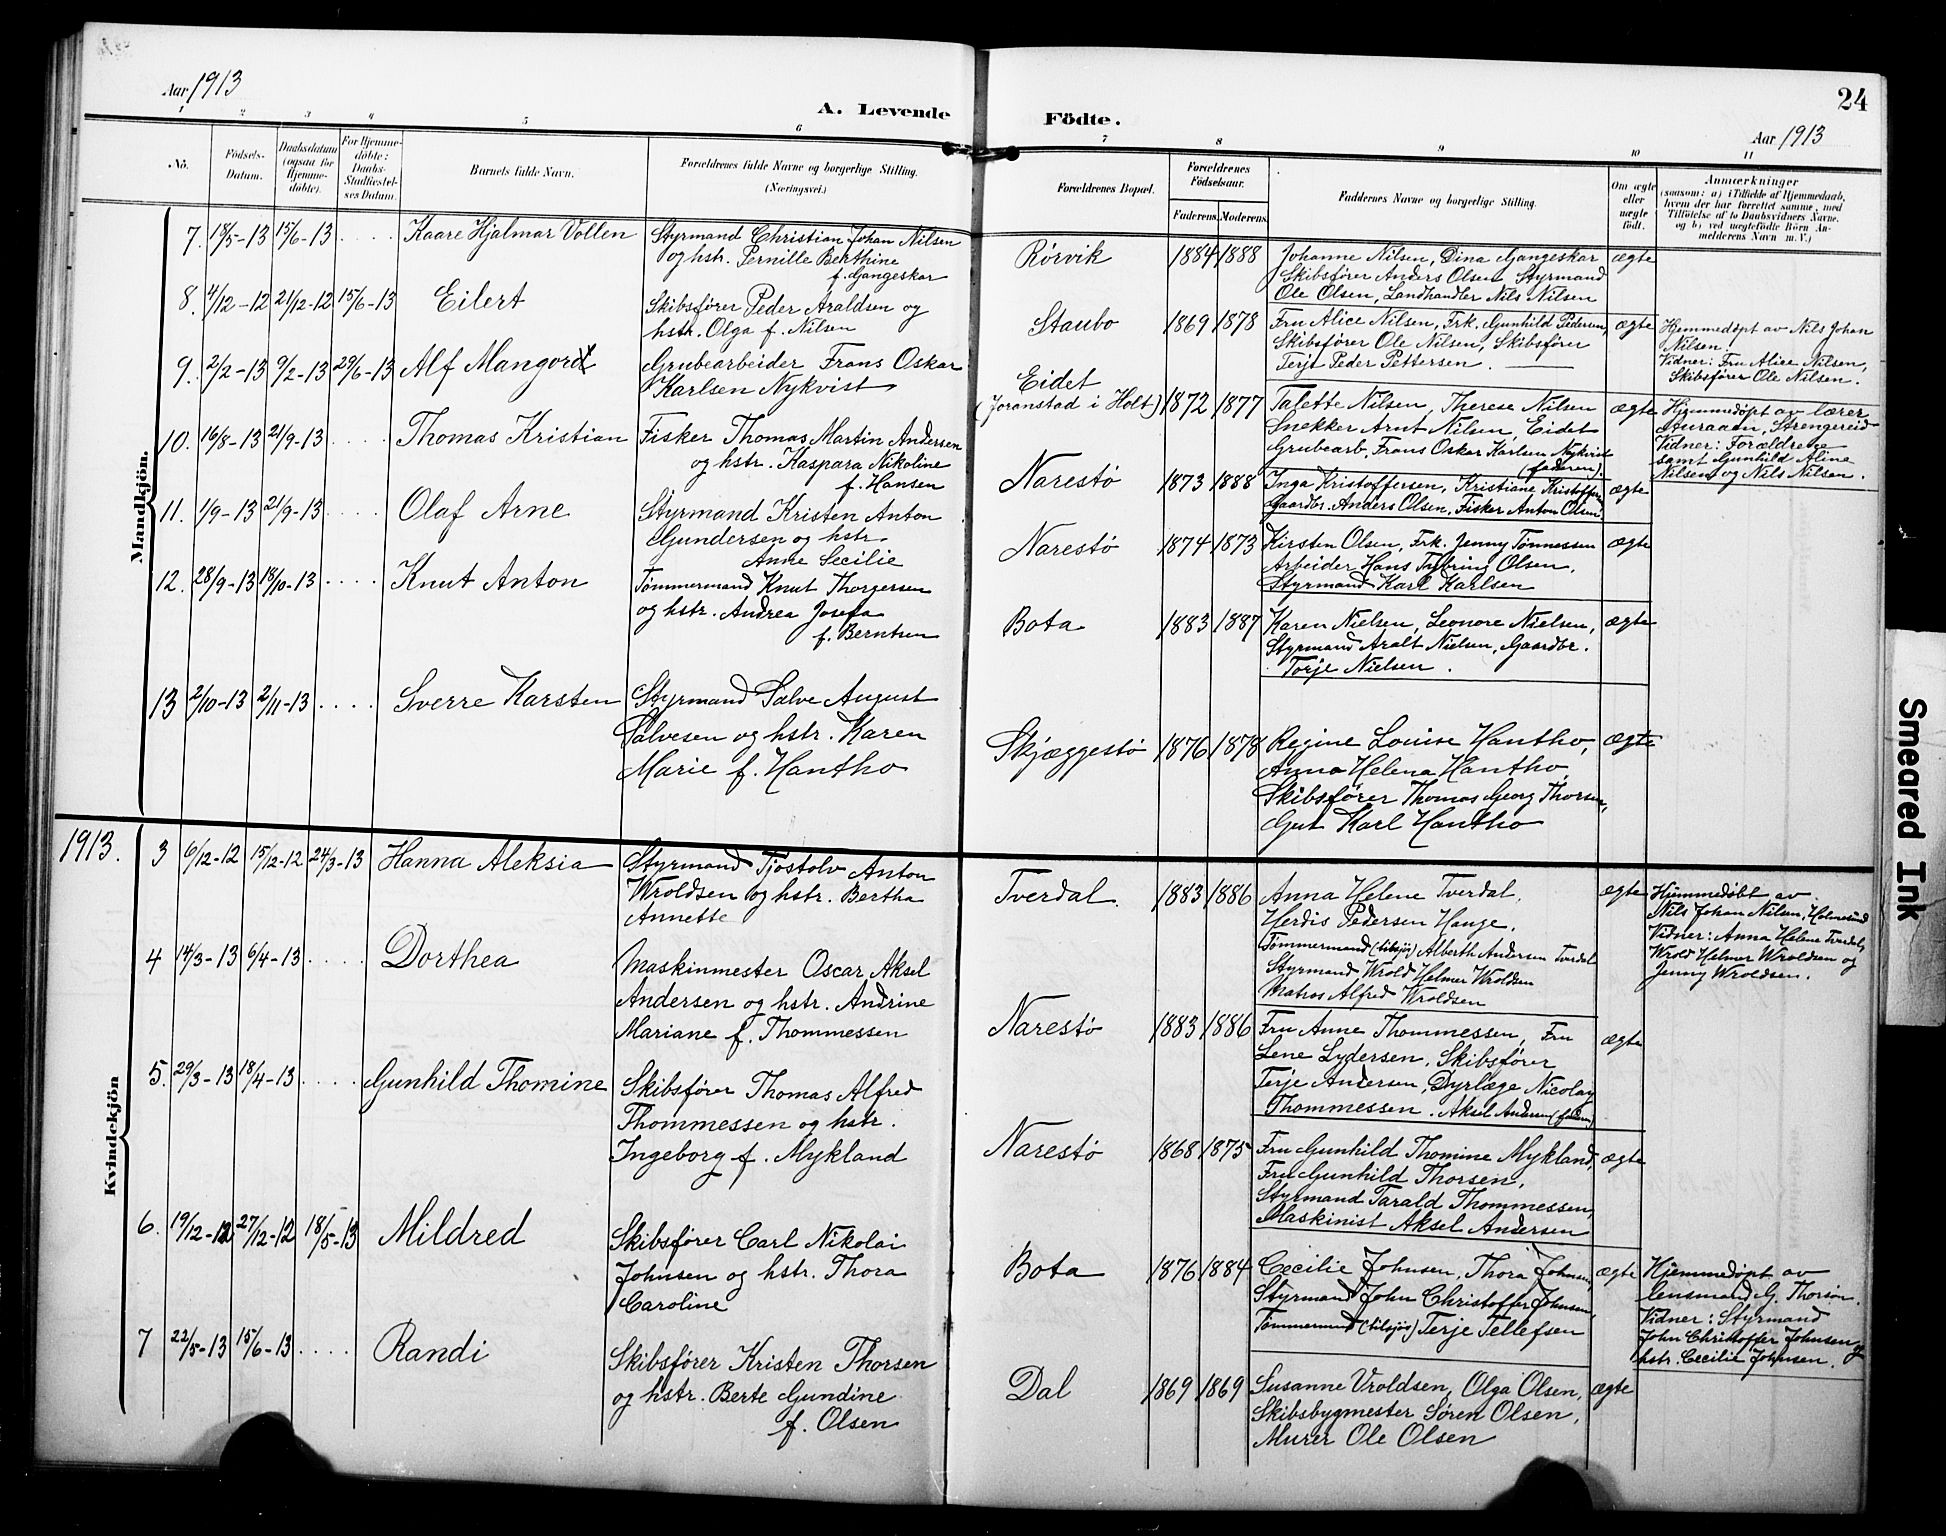 Aar 1913
A. Levende
1 2 3 4 5 6
No.
Födsels-
Datum.
Daabsdatum
(ogsaa for
Hjemme-
döbte).
For Hjemme-
döbte:
Daabs-
Stadfæstel-
ses Datum.
Barnets fulde Navn.
Forældrenes fulde Navne og borgerlige Stilling.
(Næringsvei.)
Mandkjön.
7. 18/5-13 15/6-13 . . . . Kaare Hjalmar Vollen
Styrmand Christian Johan Nilsen
og hstr. Pernille Berthine
f. Gangeskar
8. 4/12-12 21/12-12 15/6-13 Eilert
Skibsfører Peder Araldsen og
hstr. Olga f. Nilsen
9. 2/2-13 9/2-13 29/6-13 Alf Mangord
Grubearbeider Frans Oskar
Karlsen Nykvist
10. 16/8-13 21/9-13 . . . . Thomas Kristian
Fisker Thomas Martin Andersen
og hstr. Kaspara Nikoline
f. Hansen
11. 1/9-13 21/9-13 . . . . Olaf Arne
Styrmand Kristen Anton
Gundersen og hstr.
Anne Cecilie
12. 28/9-13 18/10-13 . . . . Knut Anton
Tømmermand Knut Thorgersen
og hstr. Andrea Josefa
f. Berntsen
13 2/10-13 2/11-13 . . . . Sverre Karsten
Styrmand Salve August
Salvesen og hstr. Karen
Marie f. Hantho
1913.
Kvindekjön
3 6/12-12 15/12-12 24/3-13 Hanna Aleksia
Styrmand Tjostolv Anton
Wroldsen og hstr. Bertha
Annette
4 14/3-13 6/4-13 . . . . Dorthea
Maskinmester Oscar Aksel
Andersen og hstr. Andrine
Mariane f. Thommessen
5. 29/3-13 18/4-13 . . . . Gunhild Thomine
Skibsfører Thomas Alfred
Thommessen og hstr.
Ingeborg f. Mykland
6. 19/12-12 27/12-12 18/5-13 Mildred
Skibsfører Carl Nikolai
Johnsen og hstr. Thora
Caroline
7 22/5-13 15/6-13 . . . . Randi
Skibsfører Kristen Thorsen
og hstr. Berte Gundine
f. Olsen
24
Födte.
Aar 1913
7 8 9 10 11
Forældrenes Bopæl.
Forældrenes
Födselsaar.
Faderens. Moderens.
Faddernes Navne og borgerlige Stilling.
Om ægte
eller
uægte
födt.
Anmærkninger
(saasom: a) i Tilfælde af Hjemmedaab,
hvem der har forrettet samme, med
Tilföielse af to Daabsvidners Navne.
og b) ved uægtefödte Börn An-
melderens Navn m. V.)
Rörvik 1884 1888
Johanne Nilsen, Dina Gangeskar
Skibsfører Anders Olsen, Styrmand
Ole Olsen, Landhandler Nils Nilsen
ægte
Staubo 1869 1878
Fru Alice Nilsen, Frk. Gunhild Pedersen,
Skibsfører Ole Nilsen, Skibsfører
Terje Peder Pettersen.
ægte
Hjemmedøpt av Nils Johan
Nilsen.
Vidner: Fru Alice Nilsen,
Skibsfører Ole Nilsen.
Eidet
(Joranstad i Holt) 1872 1877
Talette Nilsen, Therese Nilsen
Snekker Arnt Nilsen, Eidet
Grubearb. Frans Oskar Karlsen Nykvist
(faderen).
ægte
Hjemmedøpt av lærer
Auraaen, Strengereid
Vidner: Forældrene
samt Gunhild Aline
Nilsen og Nils Nilsen.
Narestö 1873 1888
Inga Kristoffersen, Kristiane Kristoffersen
Gaardbr. Anders Olsen, Fisker Anton Olsen.
ægte
Narestö 1874 1873
Kirsten Olsen, Frk. Jenny Tønnessen
Arbeider Hans Tybring Olsen,
Styrmand Karl Karlsen
ægte
Bota 1883 1887
Karen Nielsen, Leonore Nielsen,
Styrmand Aralt Nielsen, Gaardbr.
Torje Nielsen.
ægte
Skjæggestö 1876 1878
Regine Louise Hantho,
Anna Helena Hantho,
Skibsfører Thomas Georg Thorsen,
Gut Karl Hantho
ægte
Tverdal. 1883 1886
Anna Helene Tverdal,
Herdis Pedersen Hauge,
Tømmermand (tilsjøs) Alberth Andersen Tverdal
Styrmand Wrold Helmer Wroldsen
Matros Alfred Wroldsen
ægte
Hjemmedøbt av
Nils Johan Nilsen, Holmesund
Vidner: Anna Helene Tverdal,
Wrold Helmer Wroldsen og
Jenny Wroldsen.
Narestö 1883 1886
Fru Anne Thommessen, Fru
Lene Lydersen, Skibsfører
Terje Andersen, Dyrlæge Nicolay
Thommessen. Aksel Andersen (faderen)
ægte
Narestö 1868 1875
Fru Gunhild Thomine Mykland,
Fru Gunhild Thorsen,
Styrmand Tarald Thommessen,
Maskinist Aksel Andersen
ægte
Bota 1876 1884
Cecilie Johnsen, Thora Johnsen,
Styrmand John Christoffer Johnsen,
Tømmermand (tilsjøs) Terje Tellefsen
ægte
Hjemmedøpt av
lensmand G. Thorsen.
Vidner: Styrmand
John Christoffer Johnsen og
hstr. Cecilie Johnsen.
Dal 1869 1869
Susanne Vroldsen, Olga Olsen,
Skibsbygmester Søren Olsen,
Murer Ole Olsen
ægte
Smeared Ink